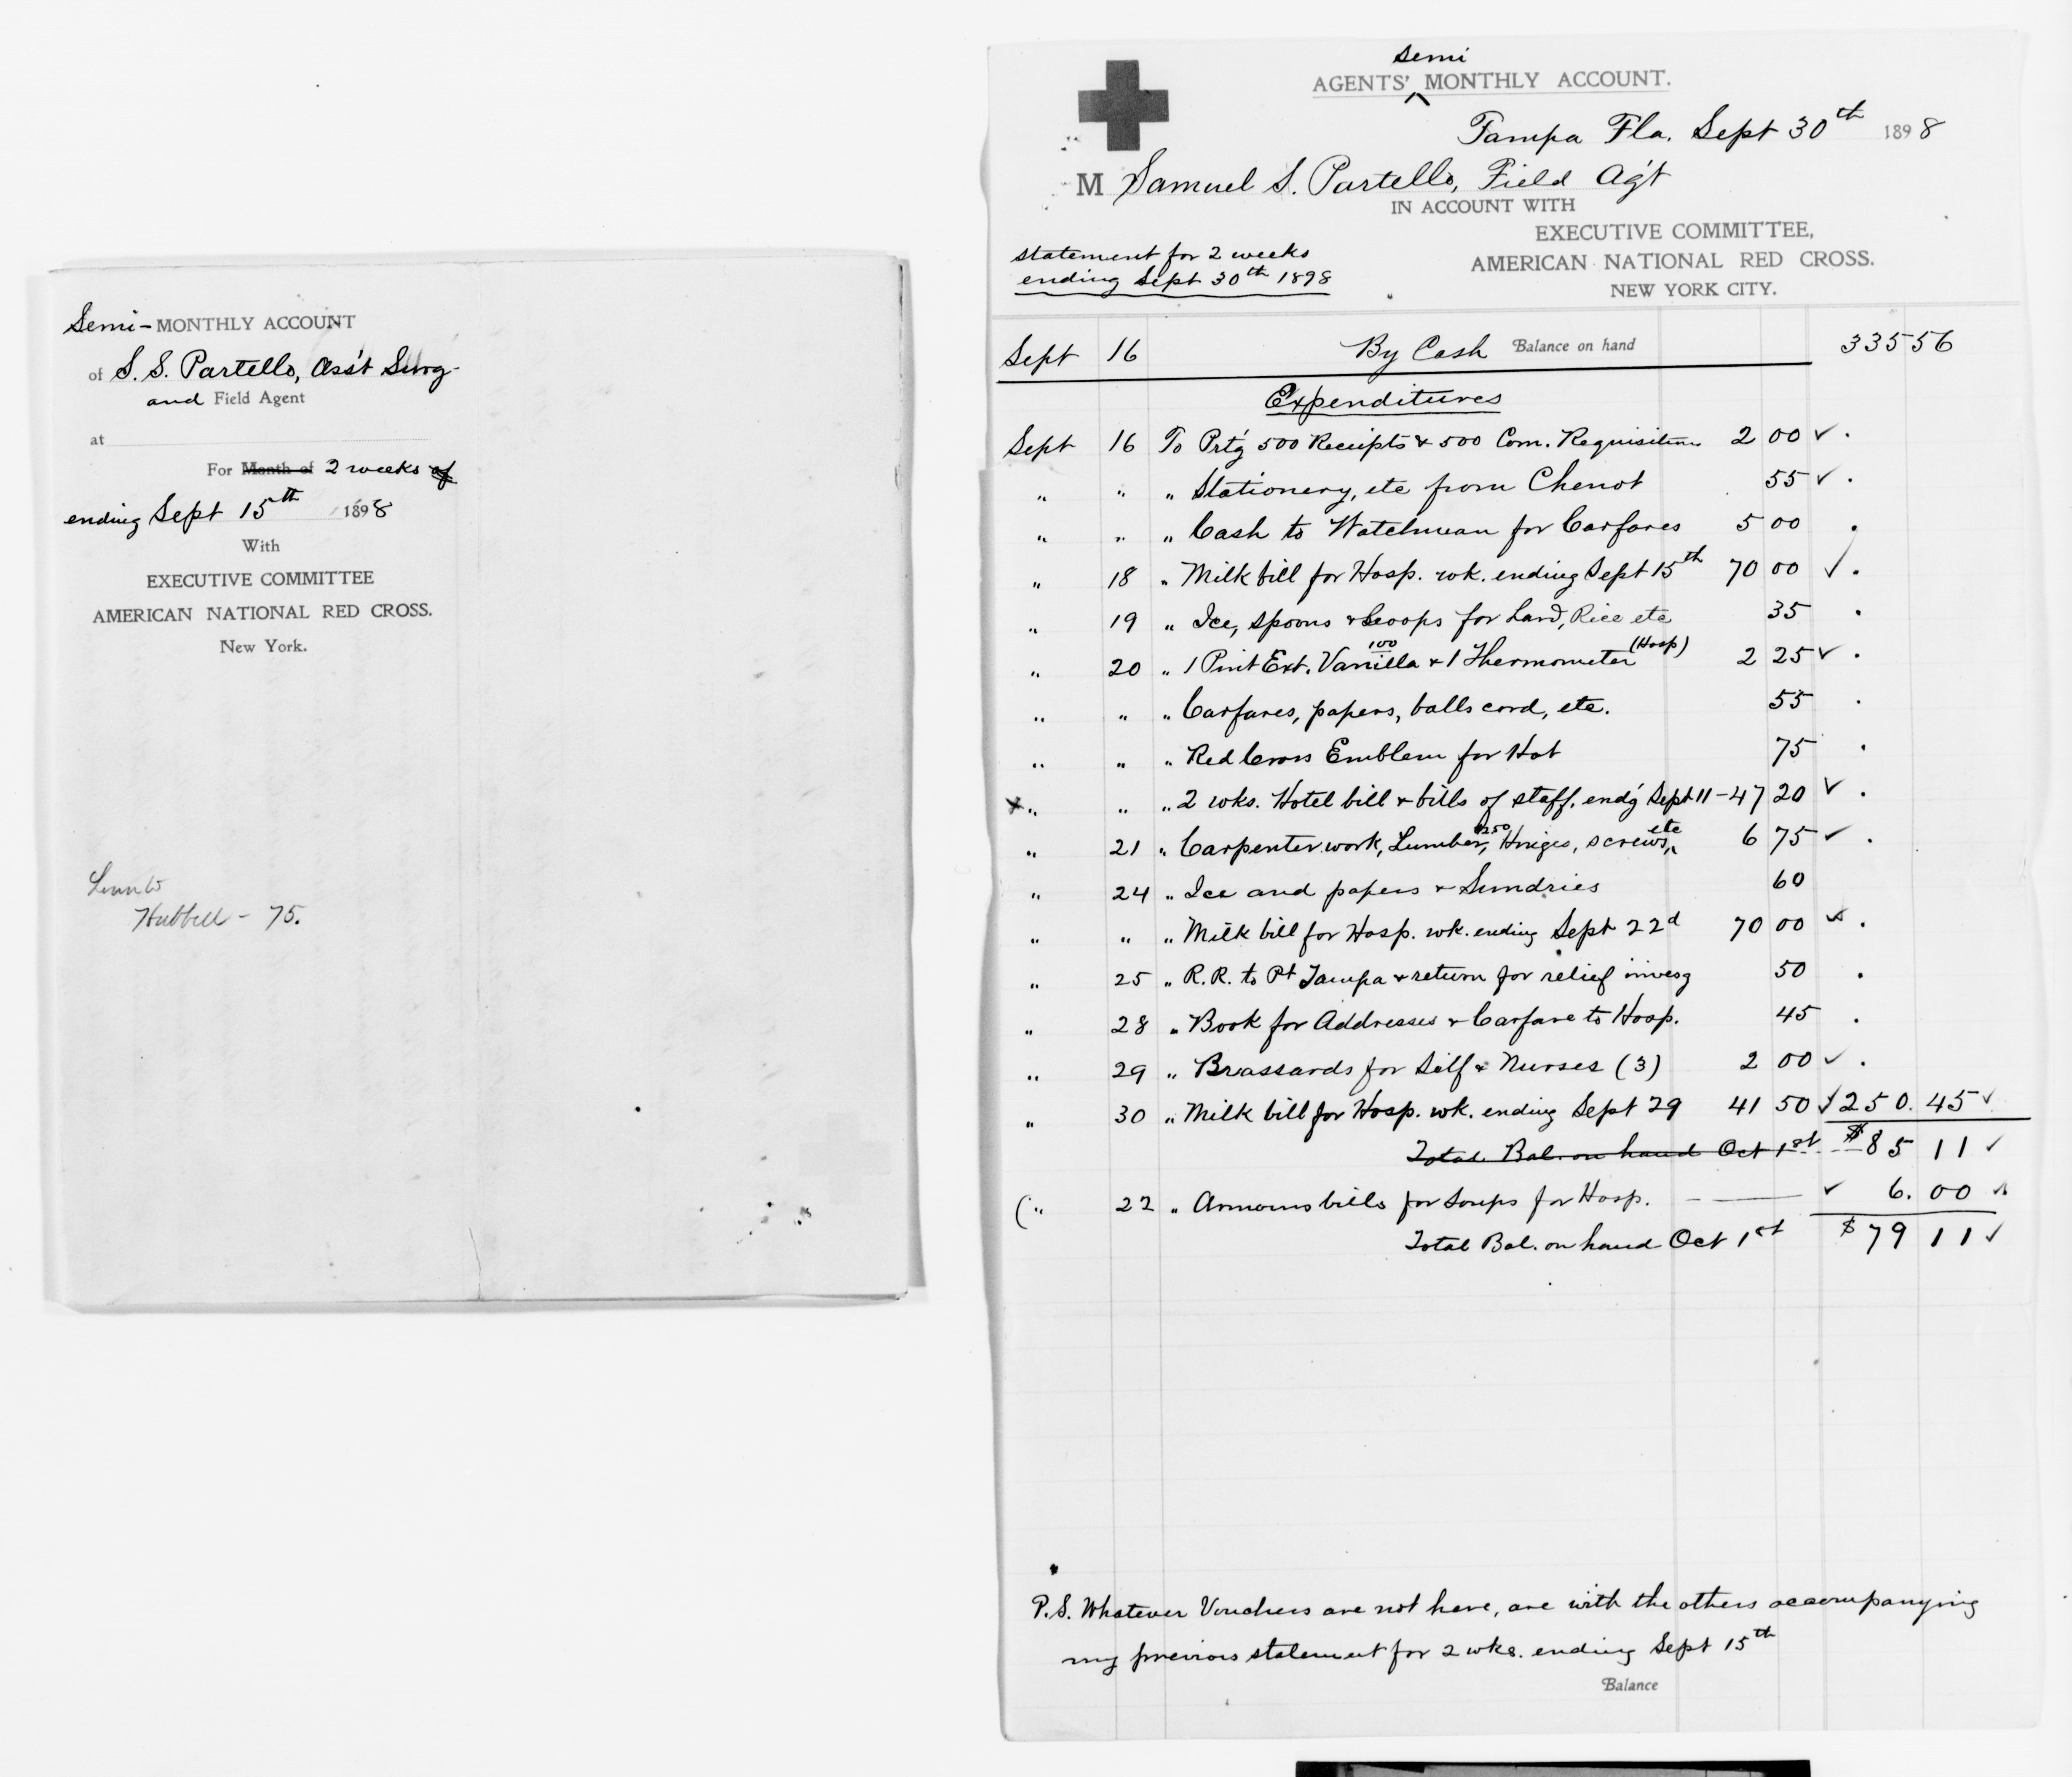 Semi-MONTHLY ACCOUNT
of S. S. Partello, Ass't Surg.
and Field Agent
at
For Month of 2 weeks of
ending Sept 15th 1898
With
EXECUTIVE COMMITTEE
AMERICAN NATIONAL RED CROSS.
New York.
Hubbell - 75.
Semi
AGENTS' ^ MONTHLY ACCOUNT.
Tampa Fla. Sept 30th 1898
M Samuel S. Partello, Field Ag't
IN ACCOUNT WITH
EXECUTIVE COMMITTEE,
AMERICAN NATIONAL RED CROSS.
NEW YORK CITY.
statement for 2 weeks
ending Sept 30th 1898
Sept 16 By Cash Balance on hand 335 56
Expenditures
Sept 16 To Prt'g 500 Receipts & 500 Com. Requisition 2 00 ✓ .
" " " Stationery, etc from Chenot 55 ✓ .
" " " Cash to Watchman for Carfares 5 00 .
" 18 " Milk bill for Hosp. wk. ending Sept 15th 70 00 ✓ .
" 19 " Ice, spoons & Scoops for Lard, Rice etc 35 .
" 20 " 1 Pint Ext. Vanilla 1 00 & 1 Thermometer (Hosp) 2 25 ✓ .
" " " Carfares, papers, balls cord, etc. 55 .
" " " Red Cross Emblem for Hat 75 .
x " " " 2 wks. Hotel bill & bills of staff. end'g Sept 11 - 47 20 ✓ .
" 21 " Carpenter work, Lumber, 250 Hinges, screws, etc 6 75 ✓ .
" 24 " Ice and papers & Sundries 60
" " " Milk bill for Hosp. wk. ending Sept 22d 70 00 ✓ .
" 25 " R.R. to Pt Tampa & return for relief invesg 50 .
" 28 " Book for Addresses & Carfare to Hosp. 45 .
" 29 " Brassards for Self & Nurses (3) 2 00 ✓ .
" 30 " Milk bill for Hosp. wk. ending Sept 29 41 50 ✓ 250.45 ✓
Total Bal. on hand Oct 1st $85 11 ✓
( " 22 " Armours bills for Soups for Hosp. ✓ 6.00
Total Bal. on hand Oct 1st $79 11 ✓
P.S. Whatever Vouchers are not here, are with the others accompanying
my previous statement for 2 wks. ending Sept 15th
Balance